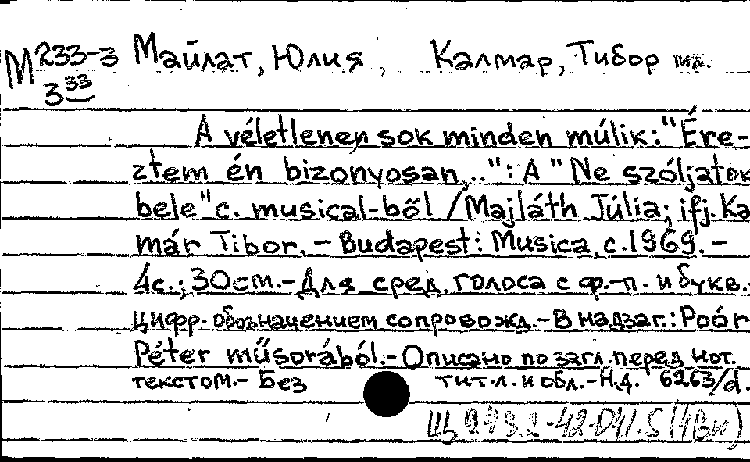 М233-3 Майлат, Юлия, Калмар, Тибор мл.
3 33
A véletlenen sok minden múlik: "Ére-
ztem én bizonyosan...": A "Ne szóljatok
bele" c. musical-ből / Majláth Júlia; ifj. Ka
már Tibor. - Budapest: Musica, c. 1969. -
4c.; 30cm. - Для сред. голоса с ф.-п. и букв.
цифр. обозначением сопровожд. - В надзаг.: Poór
Péter műsorából. - Описано по загл. перед нот.
текстом. - Без тит. л. и обл. - Н.д. 6263/d.